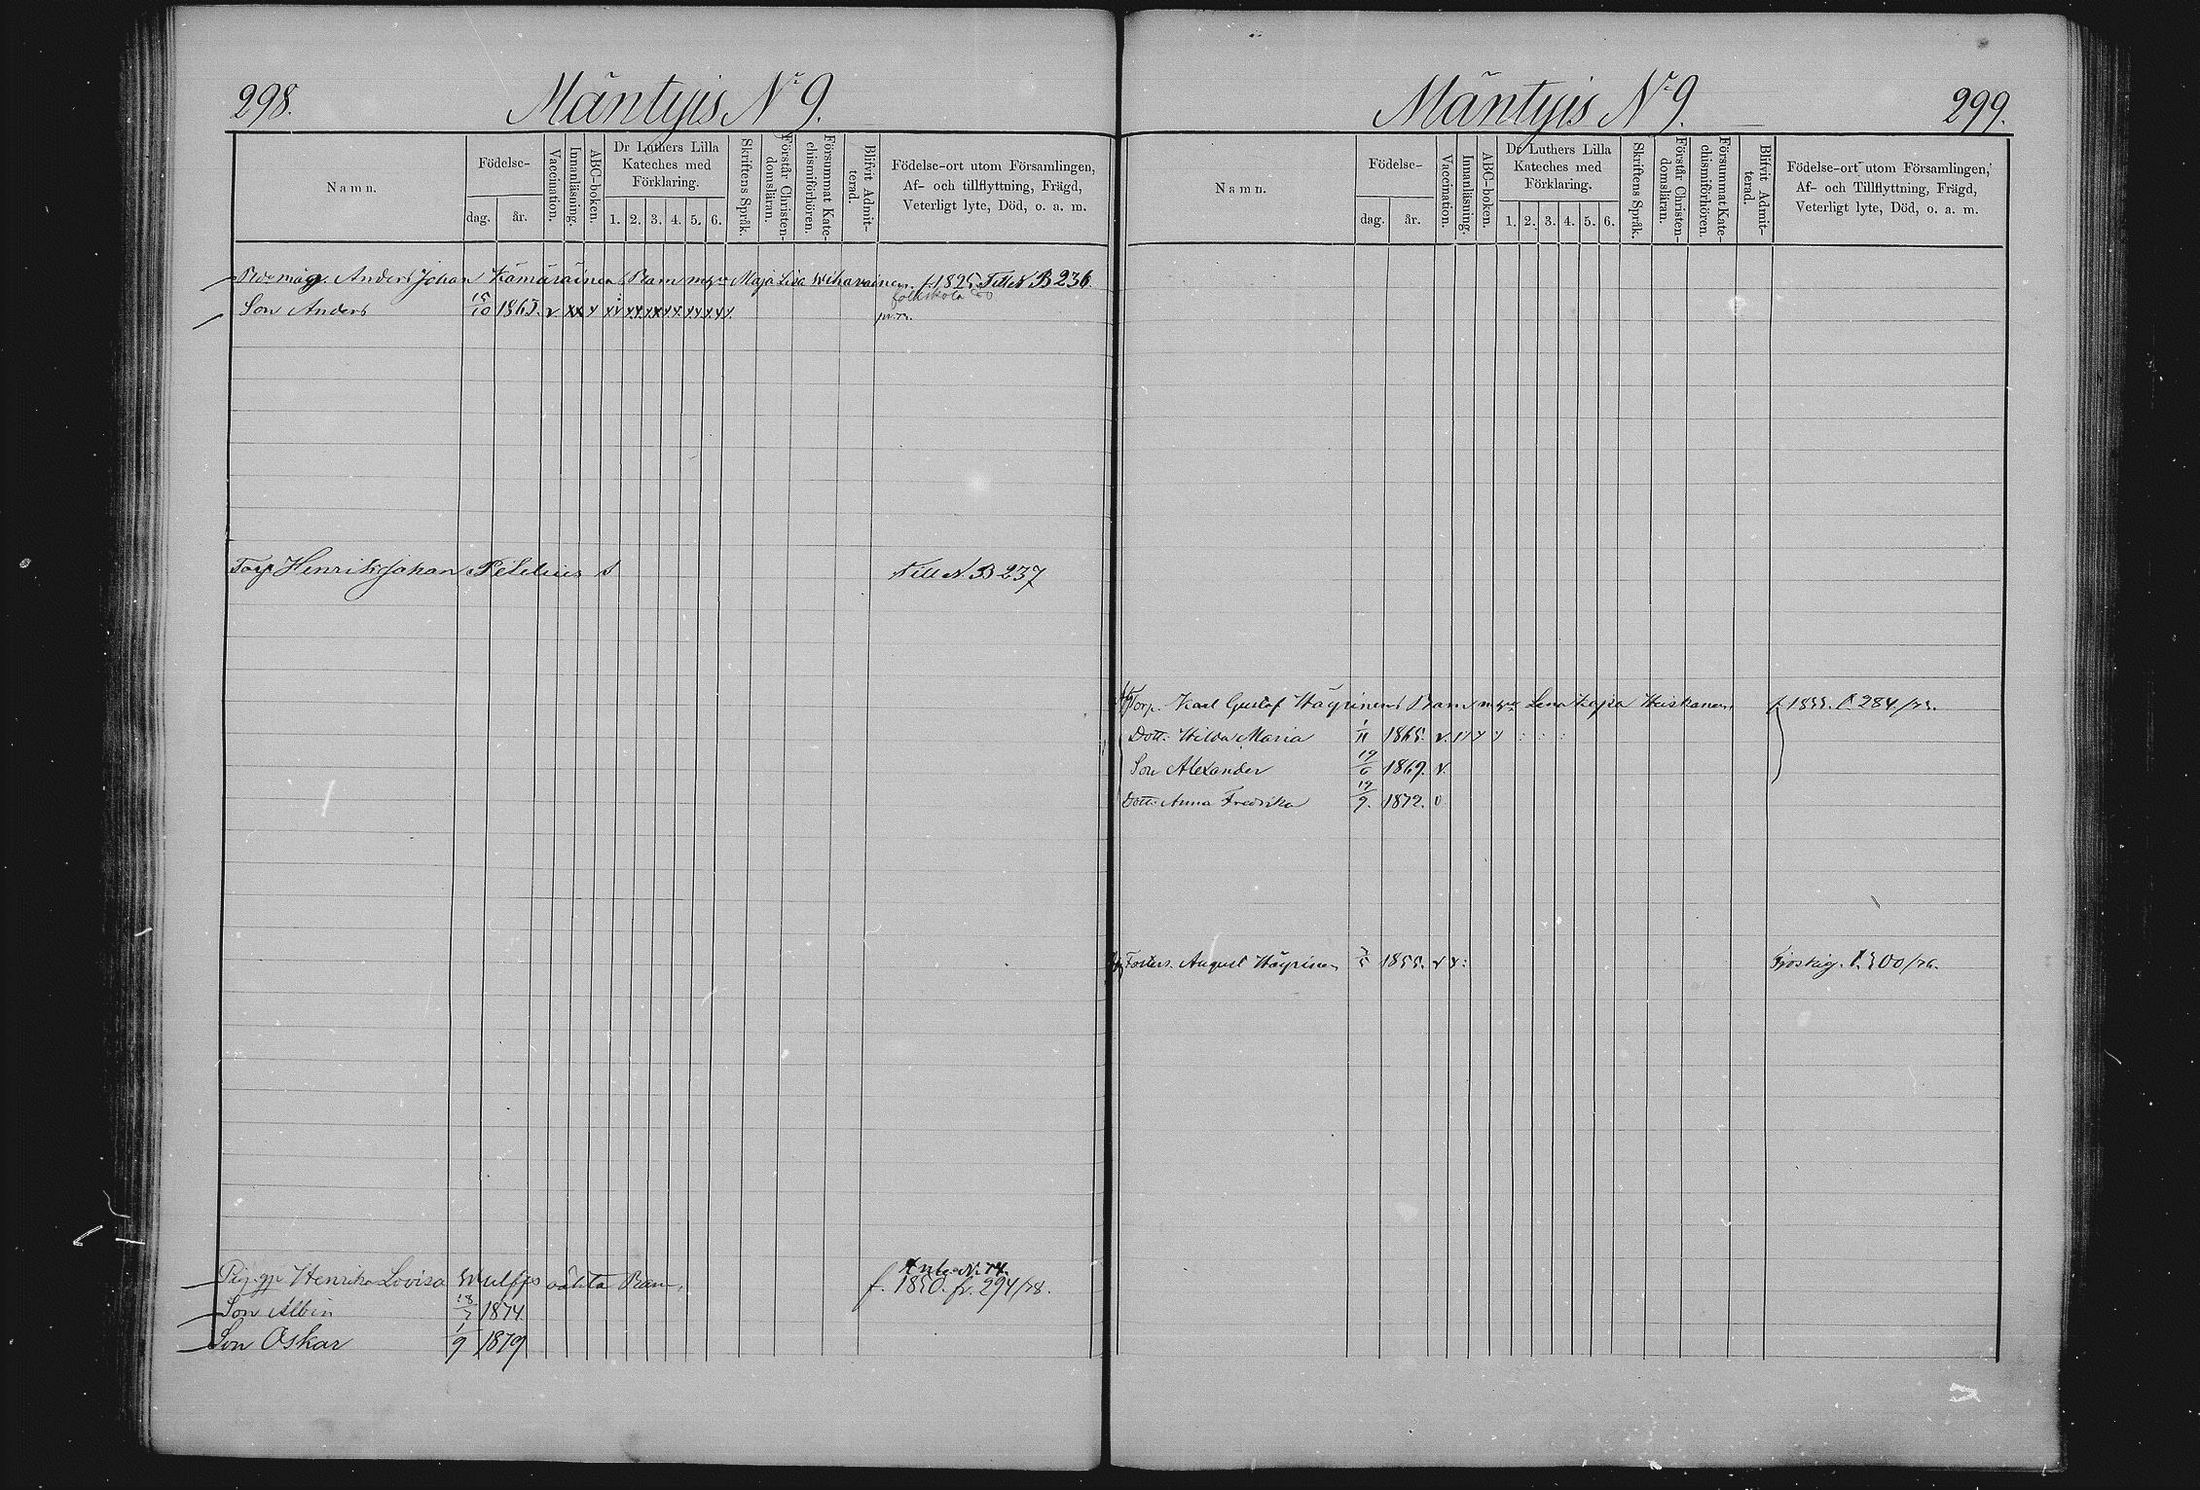 298.
Mäntyis No 9.
Namn.
Födelse-
dag.
år.
Vaccination.
Innanläsning.
ABC-boken.
Dr Luthers Lilla
Kateches med
Förklaring.
1. 2. 3. 4. 5. 6.
Skriftens Språk.
Förstår Christen-
domsläran.
Försummat Kate-
chismiförhören.
Blifvit Admit-
terad.
Födelse-ort utom Församlingen,
Af- och tillflyttning, Frägd,
Veterligt lyte, Död, o. a. m.
Anders Johan Kämäräinens Barn m Maja Lisa Wihavainen. f. 1825 Till N. B 236.
folkskola
Son Anders 15/10 1865. v
Torp. Henrik Johan Till N. B 237
Henrika Lovisa Wulffs oäkta Barn, f. 1850. fr. 294/78.
Son Albin 18/7 1874
Son Oskar 1/9 1879
Mäntyis No 9.
299.
Namn.
Födelse-
dag.
år.
Vaccination.
Innanläsning.
ABC-boken.
Dr Luthers Lilla
Kateches med
Förklaring.
1. 2. 3. 4. 5. 6.
Skriftens Språk.
Förstår Christen-
domsläran.
Försummat Kate-
chismiförhören.
Blifvit Admit-
terad.
Födelse-ort utom Församlingen,
Af- och Tillflyttning, Frägd,
Veterligt lyte, Död, o. a. m.
Torp. Karl Gustaf Häyrinens Barn m Lena Kajsa Heiskanen
Dott: Hilda Maria 1/11 1865. v.
Son Alexander 19/6 1869. v.
Dott: Anna Fredrika 19/9. 1872. v
Fosters. August Häyrinen 1855.